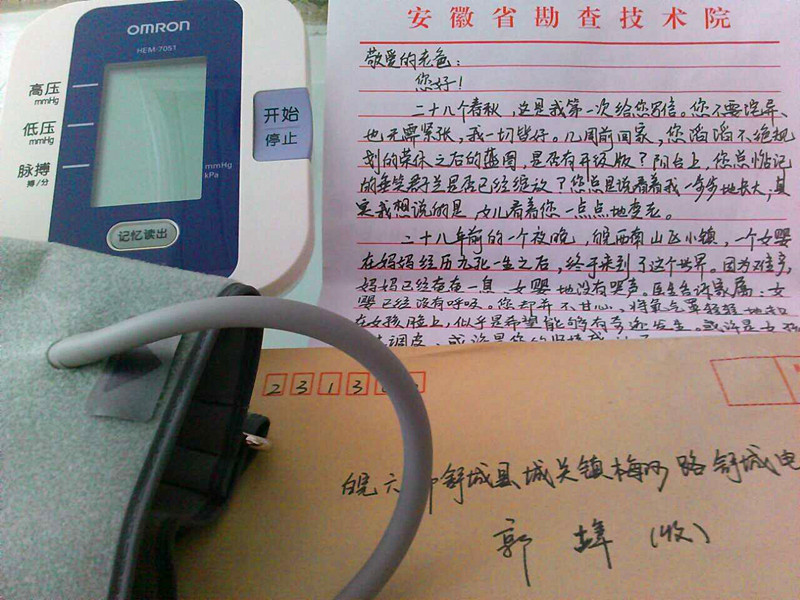 OMRON
HEM-7051
高压
mmHg
低压
mmHg
脉搏
搏/分
mmHg
kPa
开始
停止
记忆读出
安徽省勘查技术院
敬爱的老爸：
您好！
二十八个春秋，这是我第一次给您写信。您不要诧异、
也无需紧张，我一切皆好。几周前回家，您滔滔不绝规
划的荣休之后的蓝图，是否有升级版了？阳台上，您点惦记
的垂笑君子兰是否已经绽放？您总是说看着我一步步地长大，其
实我想说的是，女儿看着您一点点地变老。
二十八年前的一个夜晚，皖西南山区小镇，一个女婴
在妈妈经历九死一生之后，终于来到了这个世界。因为难产，
妈妈已经奄奄一息，女婴也没有哭声。医生告诉家属：女
婴已经没有呼吸。您却并不甘心，将氧气罩轻轻地扣
在女孩脸上，似乎是希望能够有奇迹发生。或许是女孩
2313
皖六 舒城县城关镇梅河路舒城电
郭 （收）